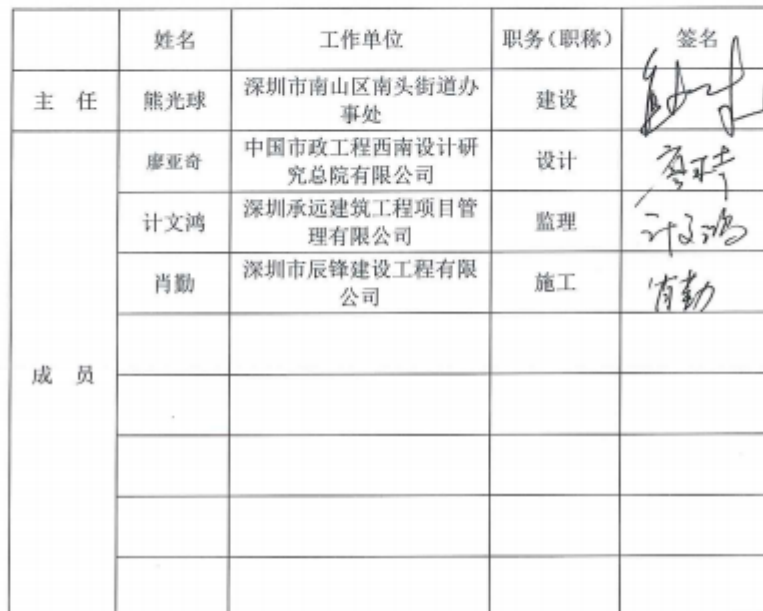 姓名 工作单位 职务(职称) 签名
主 任 熊光球 深圳市南山区南头街道办
事处 建设
廖亚奇 中国市政工程西南设计研
究总院有限公司 设计
计文鸿 深圳承远建筑工程项目管
理有限公司 监理 计文鸿
肖勤 深圳市辰锋建设工程有限
公司 施工 肖勤
成 员